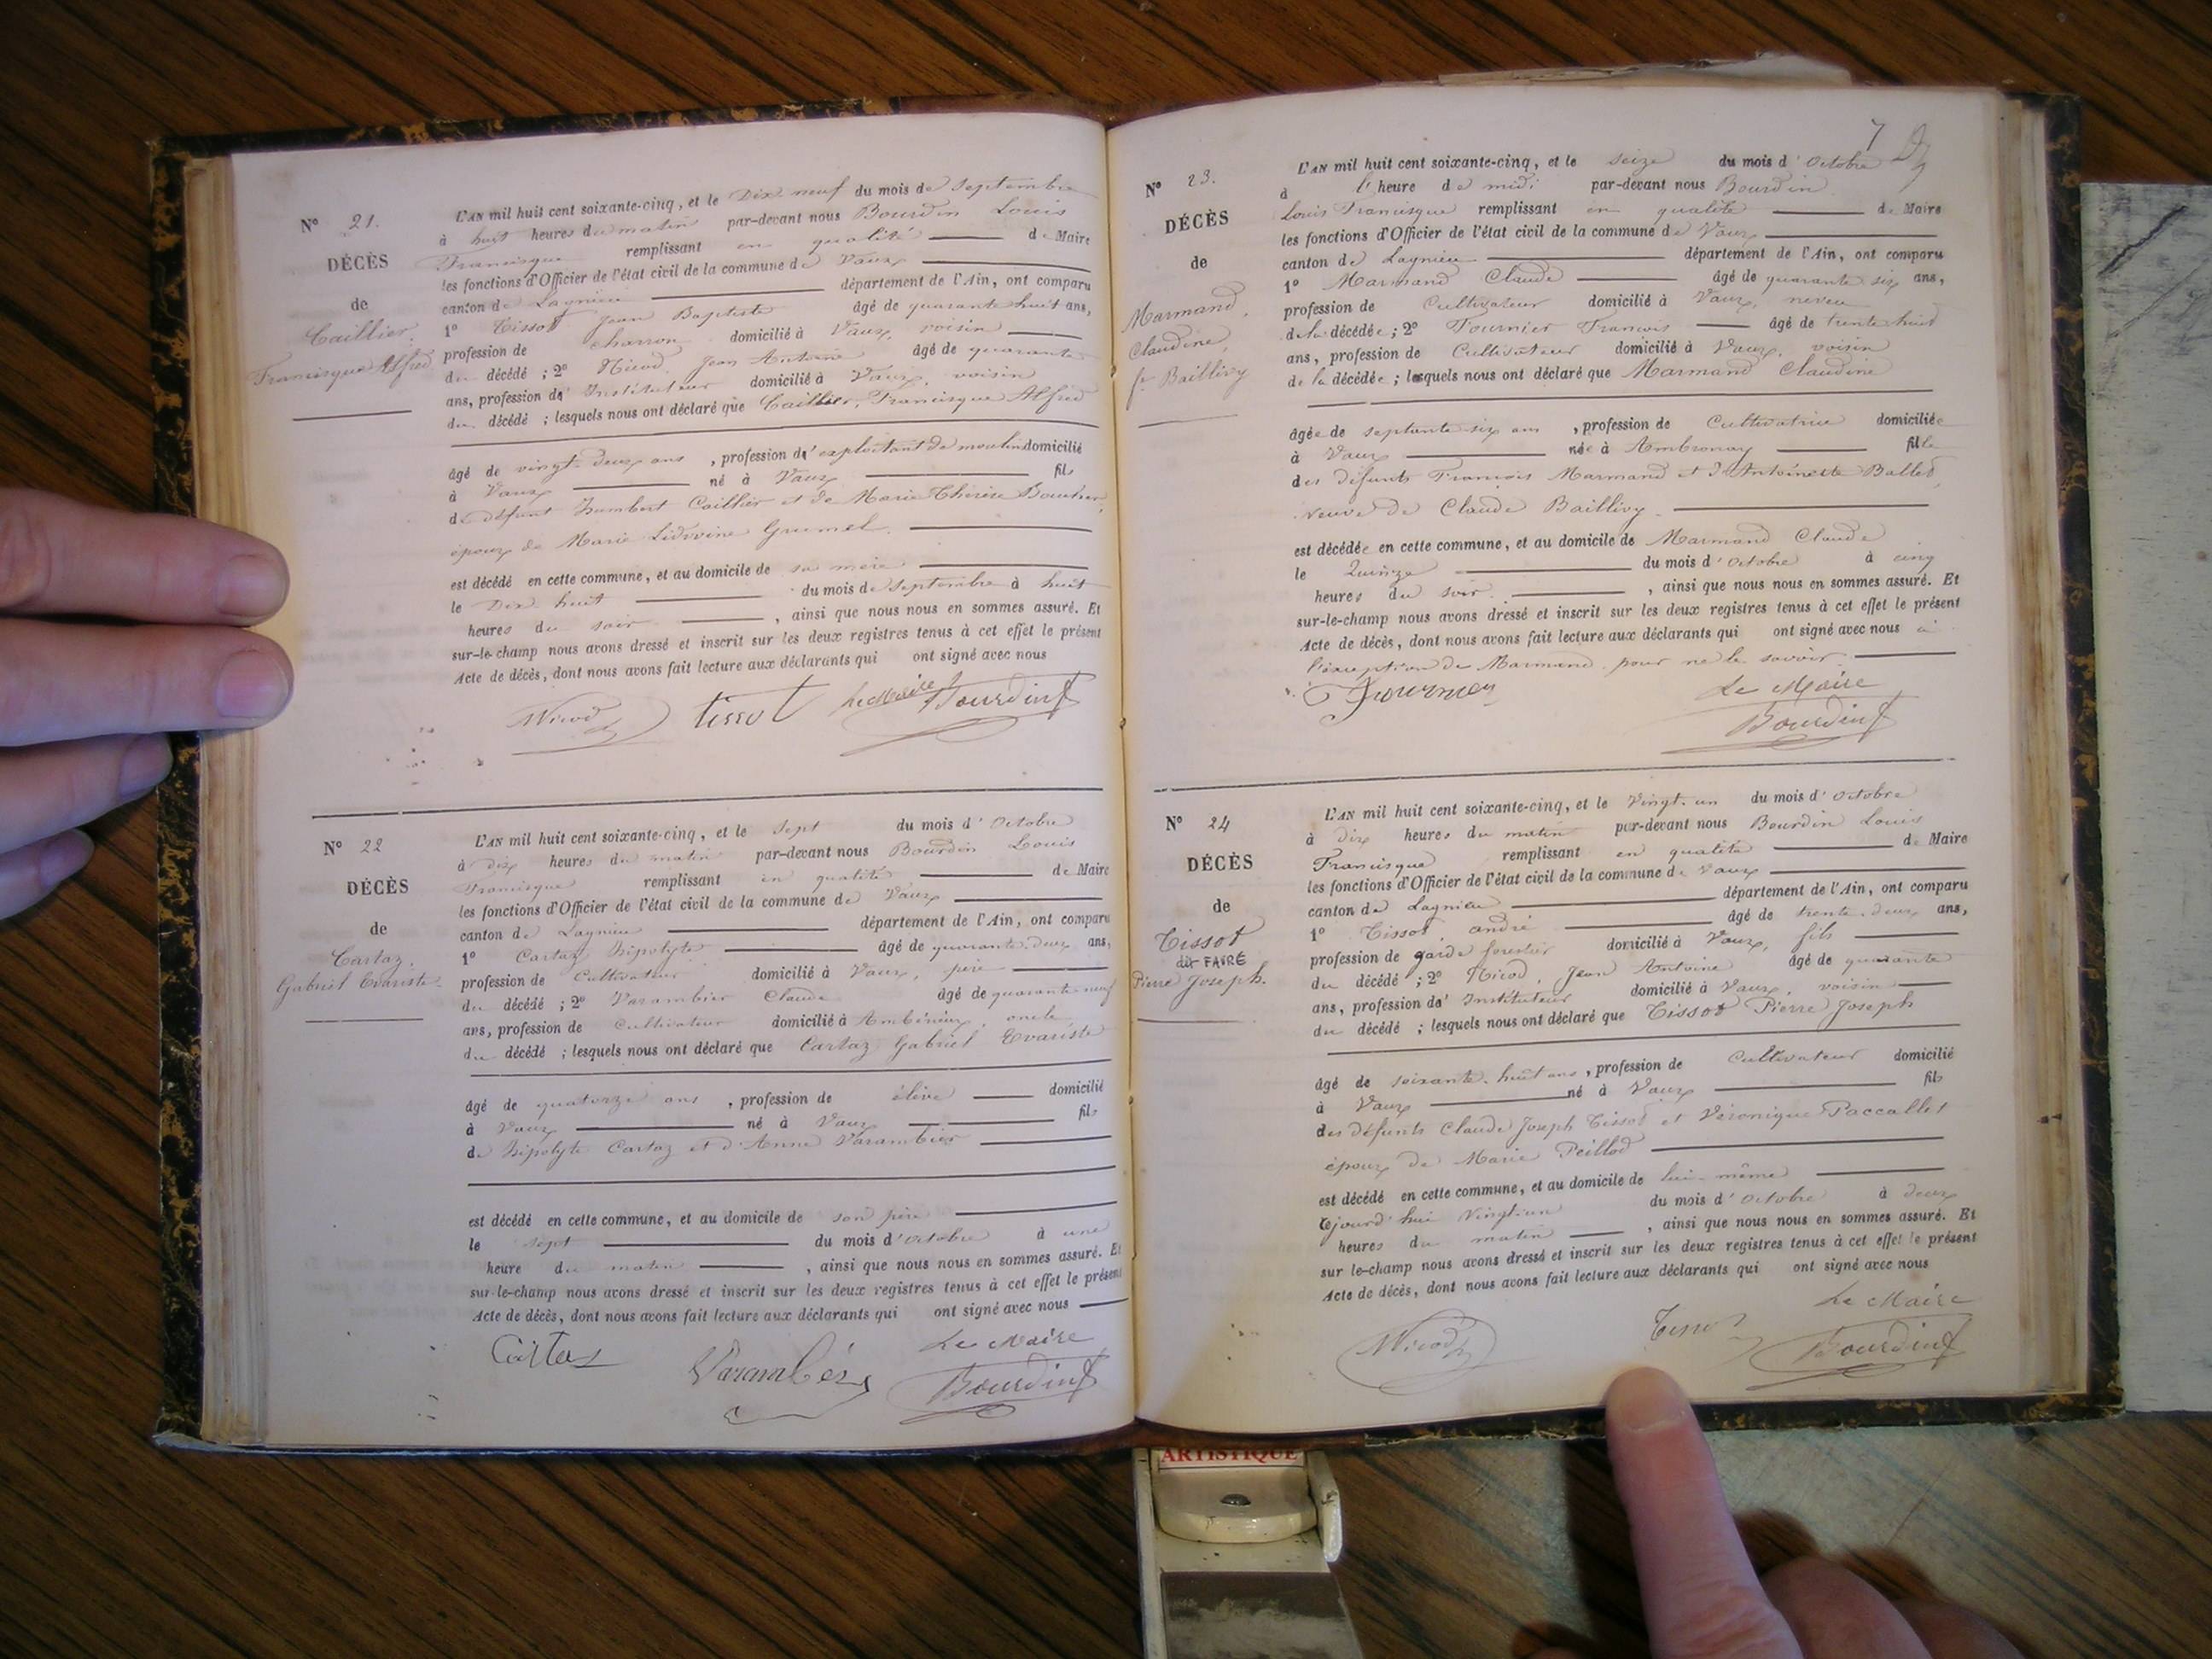 N° 21.
DÉCÈS
de
Caillier
Francisque Alfred
L'AN mil huit cent soixante-cinq, et le Dix neuf du mois de Septembre
à huit heures du matin par-devant nous Bourdin Louis
Francisque remplissant en qualité de Maire
les fonctions d'Officier de l'état civil de la commune de Vaux
canton de Lagnieu département de l'Ain, ont comparu
1° Tissot Jean Baptiste âgé de quarante huit ans,
profession de charron domicilié à Vaux, voisin
du décédé ; 2° Nicod Jean Antoine âgé de quarante
ans, profession d' Instituteur domicilié à Vaux, voisin
du décédé ; lesquels nous ont déclaré que Caillier, Francisque Alfred
âgé de vingt-deux ans , profession d' exploitant de moulin domicilié
à Vaux né à Vaux fils
de défunt Humbert Caillier et de Marie Thérèse
époux de Marie Lidvoine Grumel.
est décédé en cette commune, et au domicile de sa mère
le Dix huit du mois de Septembre à huit
heures du soir , ainsi que nous nous en sommes assuré. Et
sur-le-champ nous avons dressé et inscrit sur les deux registres tenus à cet effet le présent
Acte de décès, dont nous avons fait lecture aux déclarants qui ont signé avec nous
Nicod Tissot Le Maire Bourdin
N° 22
DÉCÈS
de
Cartaz.
Gabriel Evariste.
L'AN mil huit cent soixante-cinq, et le Sept du mois d' Octobre
à dix heures du matin par-devant nous Bourdin Louis
Francisque remplissant en qualité de Maire
les fonctions d'Officier de l'état civil de la commune de Vaux
canton de Lagnieu département de l'Ain, ont comparu
1° Cartaz Hipolyte âgé de quarante-deux ans,
profession de Cultivateur domicilié à Vaux, père
du décédé ; 2° Varambier Claude âgé de quarante neuf
ans, profession de Cultivateur domicilié à Ambérieux, oncle
du décédé ; lesquels nous ont déclaré que Cartaz Gabriel Evariste
âgé de quatorze ans , profession de élève domicilié
à Vaux né à Vaux fils
de Hipolyte Cartaz et d'Anne Varambier
est décédé en cette commune, et au domicile de son père
le sept du mois d' Octobre à une
heure du matin , ainsi que nous nous en sommes assuré. Et
sur-le-champ nous avons dressé et inscrit sur les deux registres tenus à cet effet le présent
Acte de décès, dont nous avons fait lecture aux déclarants qui ont signé avec nous
Cartaz Le Maire
Bourdin
7
N° 23.
DÉCÈS
de
Marmand,
Claudine,
Baillivy
L'AN mil huit cent soixante-cinq, et le seize du mois d' Octobre
à l' heure de midi par-devant nous Bourdin
Louis Francisque remplissant en qualité de Maire
les fonctions d'Officier de l'état civil de la commune de Vaux
canton de Lagnieu département de l'Ain, ont comparu
1° Marmand Claude âgé de quarante six ans,
profession de Cultivateur domicilié à Vaux, neveu
de la décédée ; 2° Fournier François âgé de trente huit
ans, profession de Cultivateur domicilié à Vaux, voisin
de la décédée ; lesquels nous ont déclaré que Marmand Claudine
âgée de septante six ans , profession de Cultivatrice domiciliée
à Vaux née à Ambronay fille
des défunts François Marmand et d'Antoinette Ballet,
veuve de Claude Baillivy.
est décédée en cette commune, et au domicile de Marmand Claude
le Quinze du mois d' Octobre à cinq
heures du soir. , ainsi que nous nous en sommes assuré. Et
sur-le-champ nous avons dressé et inscrit sur les deux registres tenus à cet effet le présent
Acte de décès, dont nous avons fait lecture aux déclarants qui ont signé avec nous à
l'exception de Marmand pour ne le savoir.
Fournier Le Maire
Bourdin
N° 24
DÉCÈS
de
Tissot
dit FAVRE
Pierre Joseph.
L'AN mil huit cent soixante-cinq, et le Vingt-un du mois d' Octobre
à dix heures du matin par-devant nous Bourdin Louis
Francisque remplissant en qualité de Maire
les fonctions d'Officier de l'état civil de la commune de Vaux
canton de Lagnieu département de l'Ain, ont comparu
1° Tissot andré âgé de trente-deux ans,
profession de garde forestier domicilié à Vaux, fils
du décédé ; 2° Nicod, Jean Antoine âgé de quarante
ans, profession d' Instituteur domicilié à Vaux, voisin
du décédé ; lesquels nous ont déclaré que Tissot Pierre Joseph
âgé de soixante-huit ans , profession de Cultivateur domicilié
à Vaux né à Vaux fils
des défunts Claude Joseph Tissot et Véronique Paccallet
époux de Marie Peillod
est décédé en cette commune, et au domicile de lui-même
ejourd'hui Vingt un du mois d' Octobre à deux
heures du matin , ainsi que nous nous en sommes assuré. Et
sur le-champ nous avons dressé et inscrit sur les deux registres tenus à cet effet le présent
Acte de décès, dont nous avons fait lecture aux déclarants qui ont signé avec nous
Nicod Tissot Le Maire
Bourdin
ARTISTIQUE